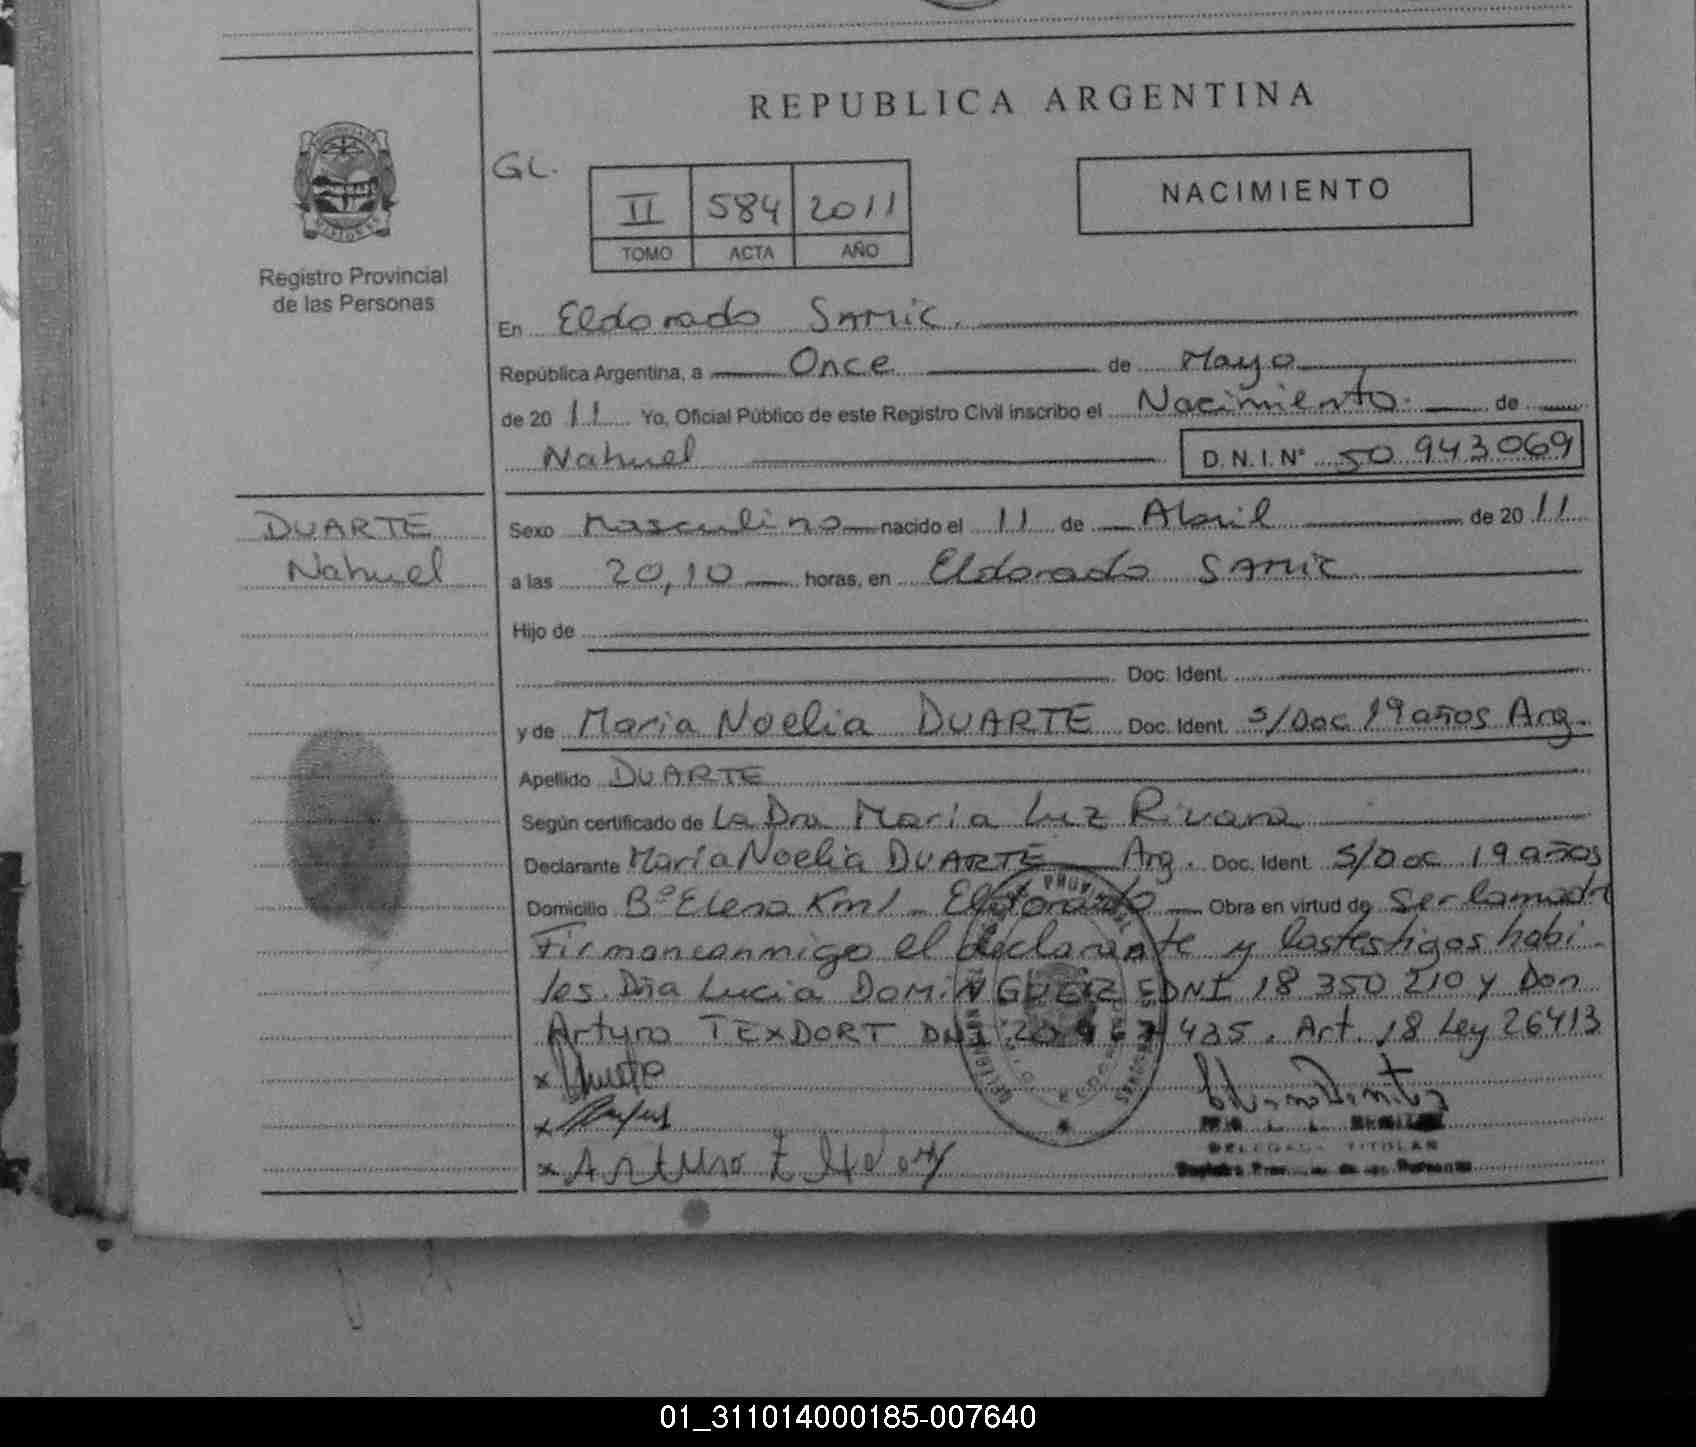 REPUBLICA ARGENTINA
GL.
II 584 2011
TOMO ACTA AÑO
NACIMIENTO
Registro Provincial
de las Personas
En Eldorado SAMIC.
República Argentina, a Once de Mayo
de 2011 Yo, Oficial Público de este Registro Civil inscribo el Nacimiento de
Nahuel D.N.I.N° 50 943069
DUARTE
Nahuel
Sexo Masculino nacido el 11 de Abril de 2011
a las 20,10 horas, en Eldorado SAMIC
Hijo de
Doc. Ident.
y de Maria Noelia DUARTE Doc. Ident. S/Doc 19 años Arg.
Apellido DUARTE
Según certificado de La Dra Maria Luz Rivara
Declarante Maria Noelia DUARTE Arg. Doc. Ident. S/Doc 19 años
Domicilio Bº Elena Km1 - Eldorado Obra en virtud de ser la madre
Firman conmigo el declarante y los testigos habi-
les. Dña Lucia DOMINGUEZ DNI 18 350 210 y Don
Arturo TEXDORT DNI 435. Art. 18 Ley 26413
x Duarte
x
x Arturo
DELEGADA TITULAR
01_311014000185-007640